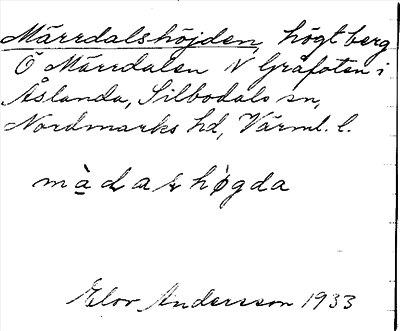 Märrdalshöjden, högt berg
Ö Märrdalen N Gråfoten i
Åslanda, Silbodals sn,
Nordmarks hd, Värml. l.
màdaɽhøgda
Elov Andersson 1933